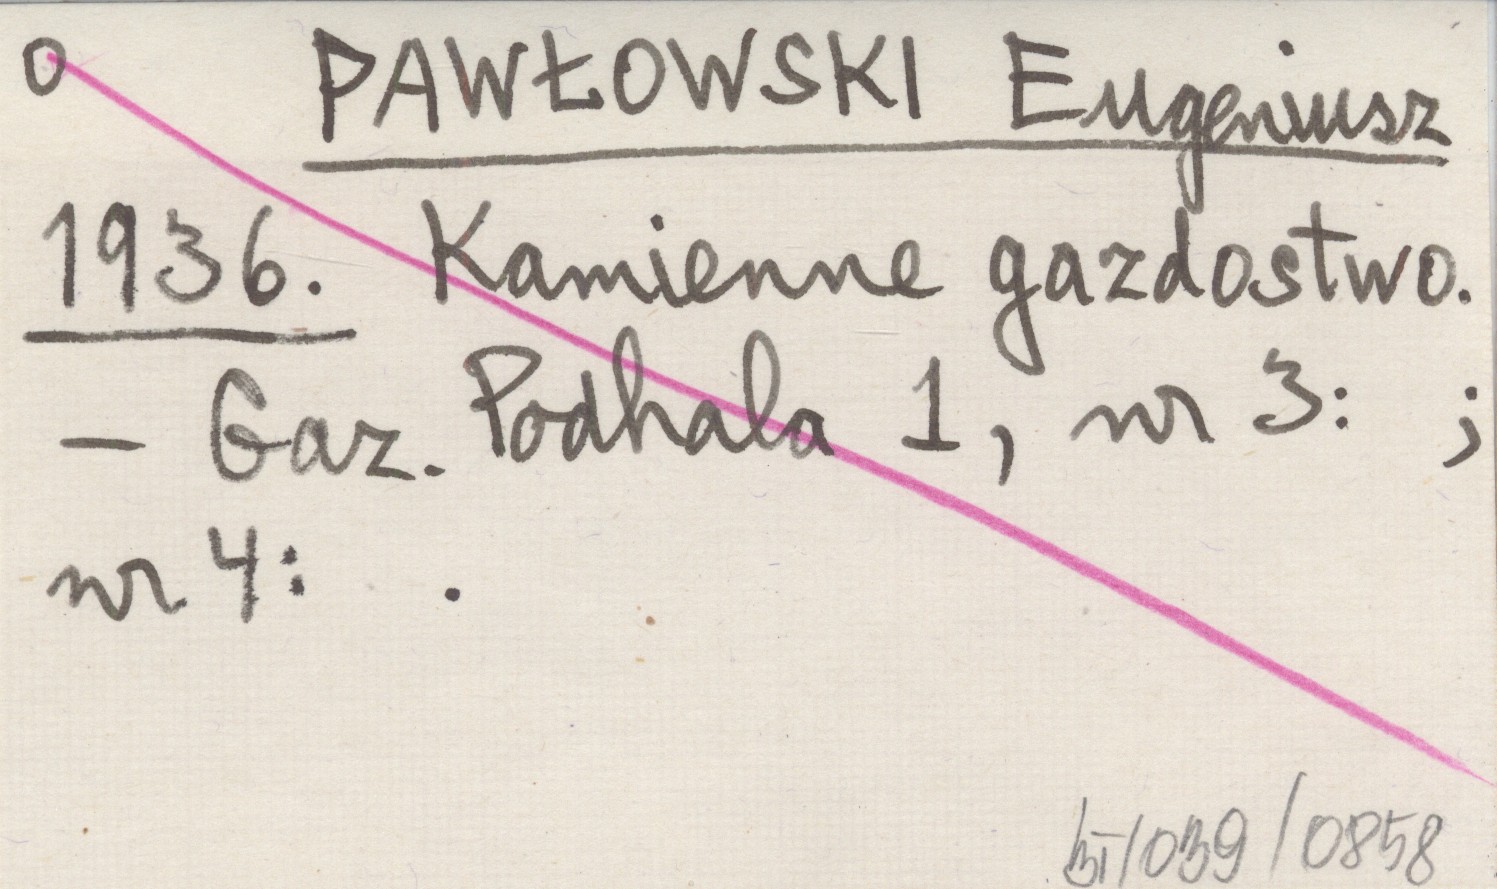 O PAWŁOWSKI Eugeniusz
1936. Kamienne gazdostwo.
– Gaz. Podhala 1, nr 3: ;
nr 4: .
/039/0858